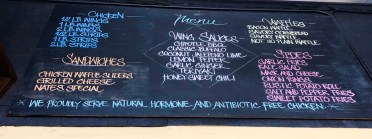 Menu
CHICKEN
1/2 LB WINGS
1 LB WINGS
2 LB WINGS
1/2 LB STRIPS
1 LB STRIPS
2 LB STRIPS
SANDWICHES
CHICKEN WAFFLE SLIDERS
GRILLED CHEESE
NATE'S SPECIAL
WING SAUCES
CHIPOTLE BBQ
CLASSIC BUFFALO
COCONUT JALAPENO LIME
LEMON PEPPER
GARLIC GINGER
TERIYAKI
HONEY SWEET CHILI
WAFFLES
BACON WAFFLE
SAVORY CORNBREAD
SWEET WAFFLE
NOT SO PLAIN WAFFLE
SIDES
GARLIC FRIES
SALAD
MAC AND CHEESE
ONION RINGS
RUSTIC POTATO
SALT AND PEPPER FRIES
SWEET POTATO FRIES
WE PROUDLY SERVE NATURAL, HORMONE, AND ANTIBIOTIC FREE CHICKEN